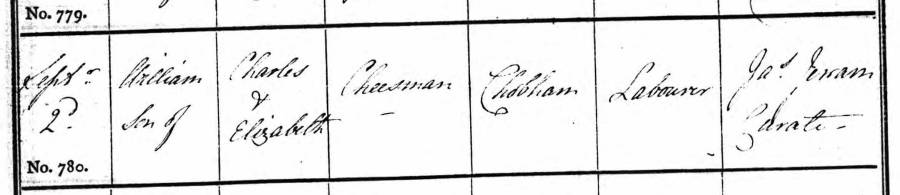 No. 779.
Septr.
2d.
William
Son of
Charles
&
Elizabeth
Cheesman
Chobham
Labourer
Jas.
Curate
No. 780.